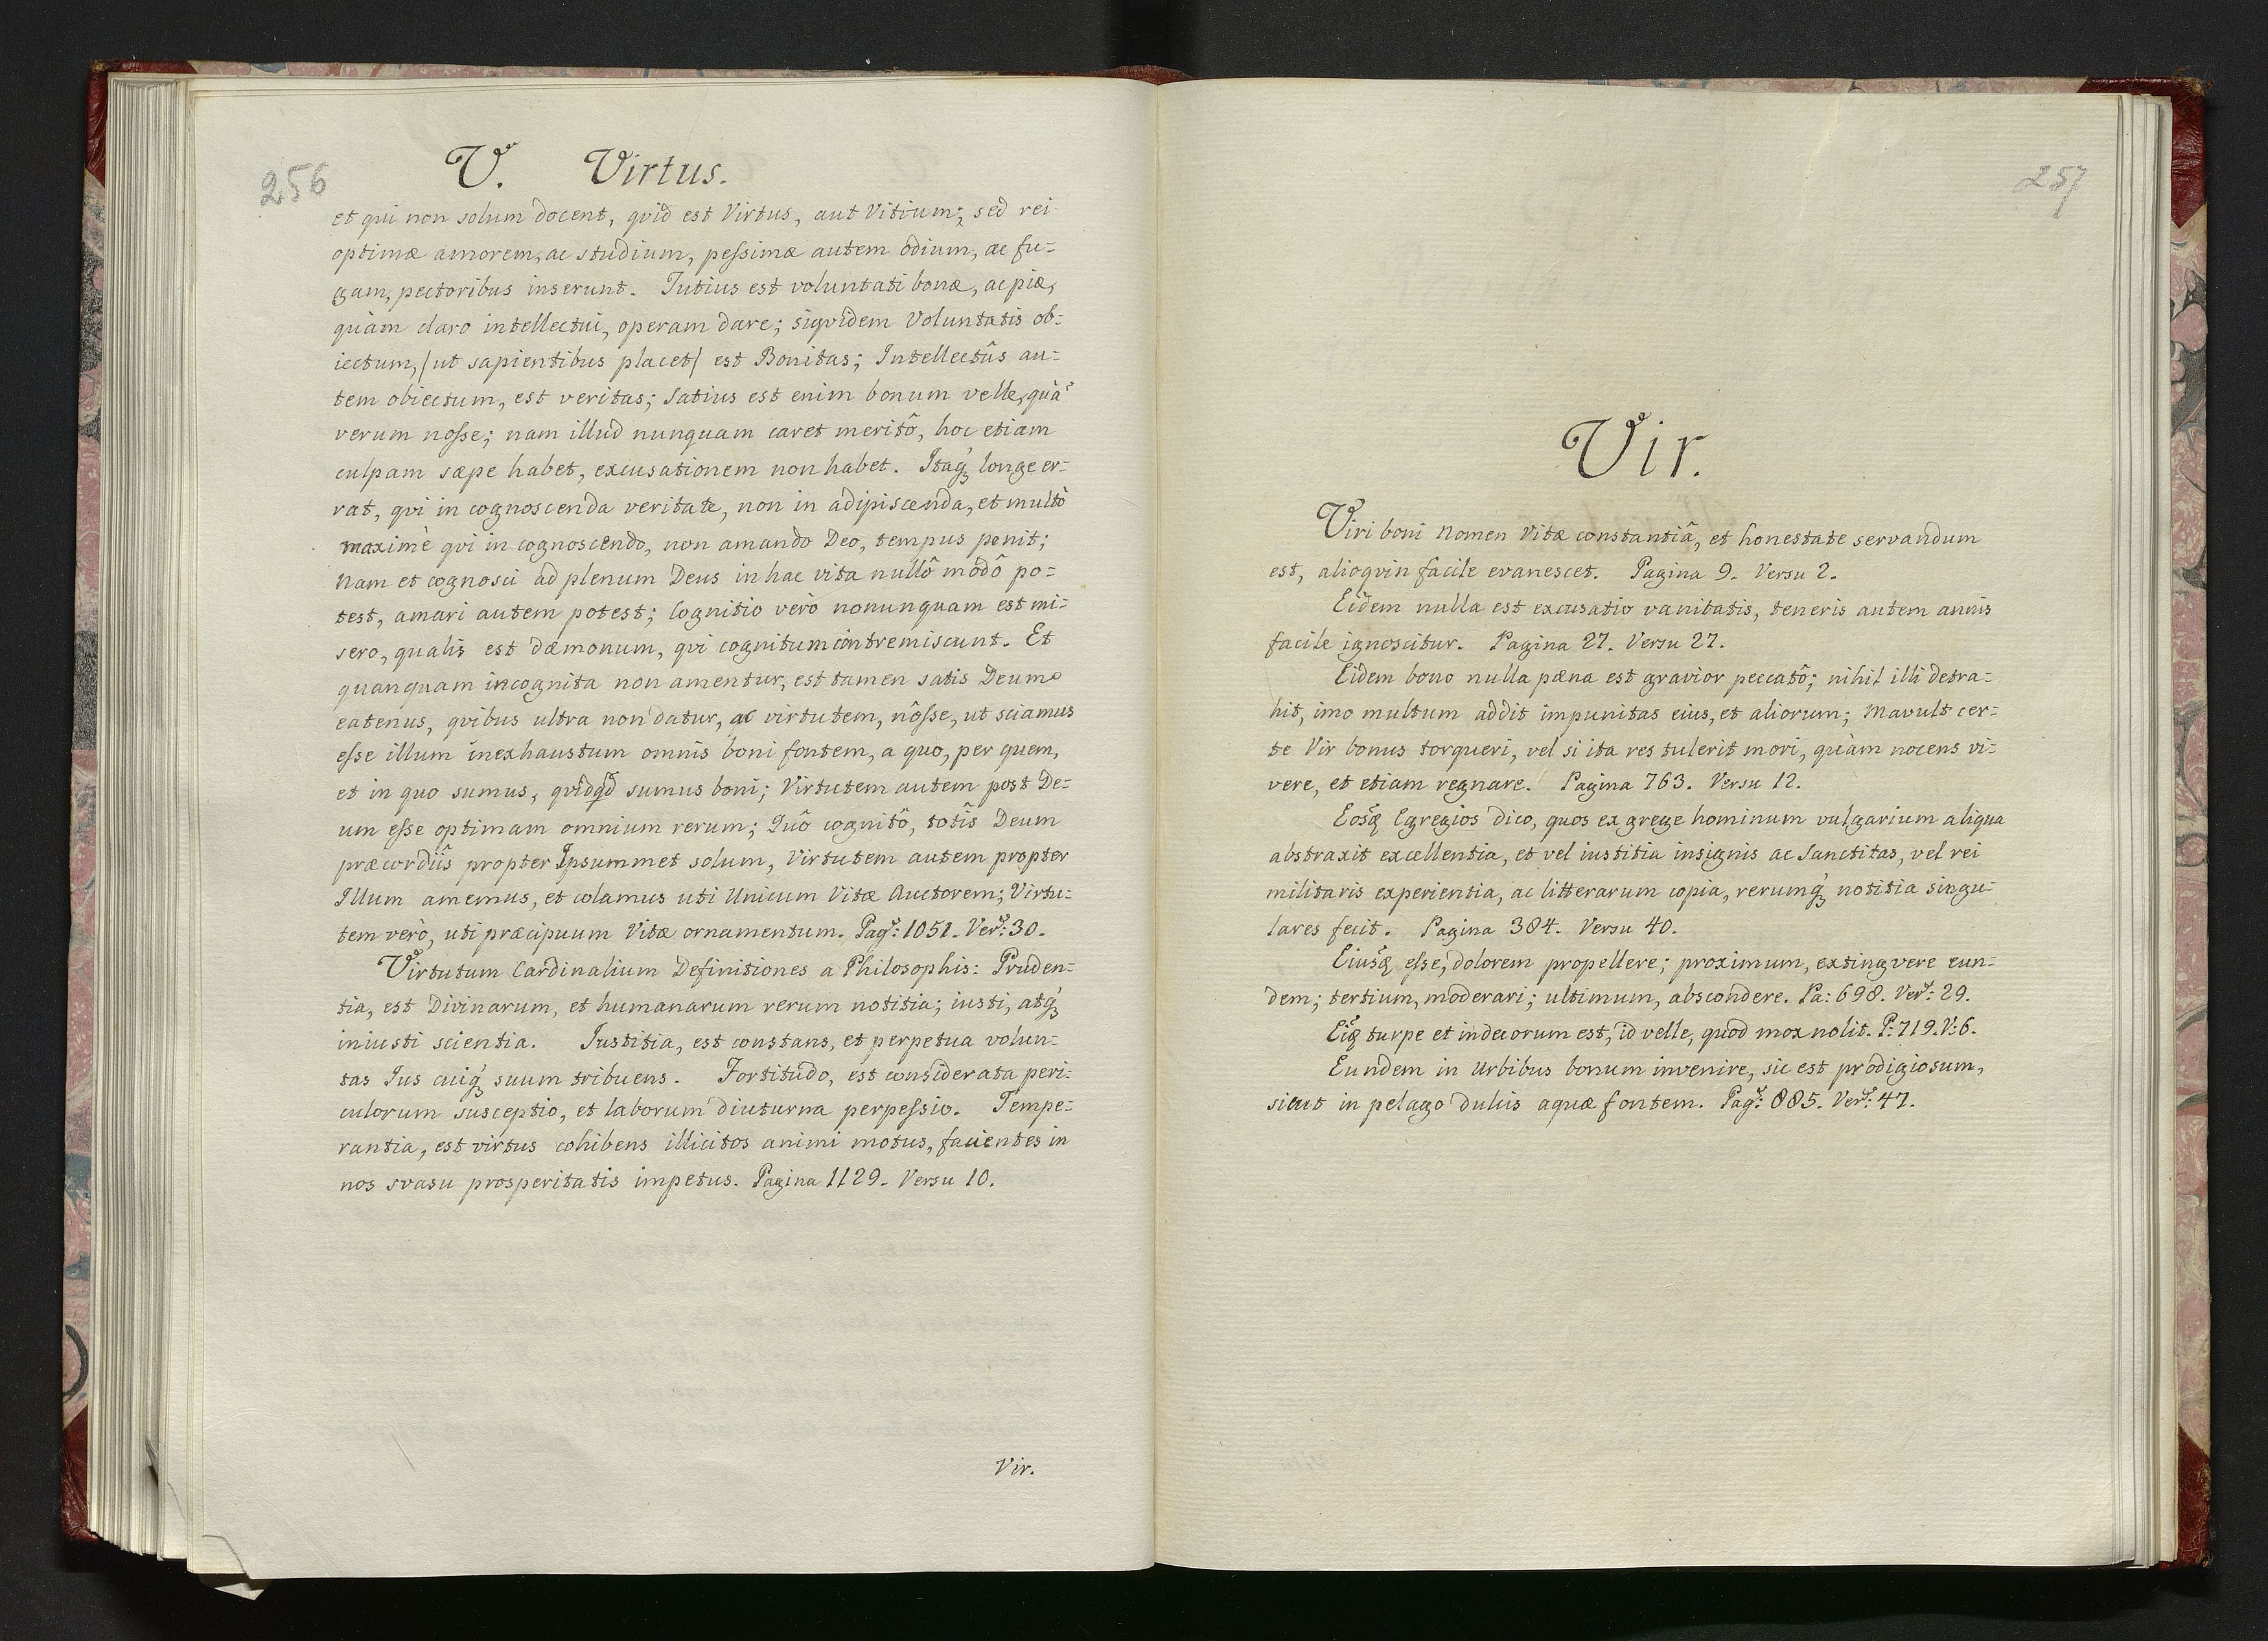 256
V. Virtus.
et qui non solum docent, qvid est Virtus, aut Vitium; sed rei
optimæ amorem, ac studium, peſsimæ autem odium, ac fu=
gam, pectoribus inserunt. Tutius est voluntati bonæ, ac piæ,
quàm claro intellectui, operam dare; siqvidem Voluntatis ob=
iectum, /ut sapientibus placet/ est Bonitas; Intellectûs au=
tem obiectum, est veritas; Satius est enim bonum velle, quã
verum noſse; nam illud nunquam caret meritô, hoc etiam
culpam sæpe habet, excusationem non habet. Itaq́ꝫ longe er=
rat, qvi in cognoscenda veritate, non in adipiscenda, et multò
maximè qvi in cognoscendo, non amando Deo, tempus ponit;
Nam et cognosci ad plenum Deus in hac vita nullô modô po=
test, amari autem potest; Cognitio verò nonunquam est mi=
sero, qualis est dæmonum, qvi cognitum contremiscunt. Et
quanquam incognita non amentur, est tamen satis Deum
eatenus, qvibus ultra non datur, ac virtutem, nôſse, ut sciamus
eſse illum inexhaustum omnis boni fontem, a quo, per quem,
et in quo sumus, qvidqd sumus boni; Virtutem autem post De=
um eſse optimam omnium rerum; Quô cognitô, totîs Deum
præcordiîs propter Ipsummet solum, Virtutem autem propter
Illum amemus, et colamus uti Unicum Vitæ Auctorem; Virtu=
tem verò, uti præcipuum Vitæ ornamentum. Pag: 1051. Ver: 30.
Virtutum Cardinalium Definitiones a Philosophis: Pruden=
tia, est Divinarum, et humanarum rerum notitia; iusti, atq́ꝫ
iniusti scientia. Iustitia, est constans, et perpetua volun=
tas Ius cuiq́ꝫ suum tribuens. Fortitudo, est considerata peri=
culorum susceptio, et laborum diuturna perpeſsio. Tempe=
rantia, est virtus cohibens illicitos animi motus, facientes in
nos svasu prosperitatis impetus. Pagina 1129. Versu 10.
Vir.
257
Vir.
Viri boni Nomen Vitæ constantiâ, et honestate servandum
est, alioqvin facile evanescet. Pagina 9. Versu 2.
Eidem nulla est excusatio vanitatis, teneris autem annis
facile ignoscitur. Pagina 27. Versu 27.
Eidem bono nulla pæna est gravior peccatô; nihil illi detra=
hit, imo multum addit impunitas eius, et aliorum; Mavult cer=
te Vir bonus torqueri, vel si ita res tulerit mori, quàm nocens vi=
vere, et etiam regnare. Pagina 763. Versu 12.
Eosq́ꝫ Egregios dico, quos ex grege hominum vulgarium aliqua
abstraxit excellentia, et vel iustitia insignis ac Sanctitas, vel rei
militaris experientia, ac litterarum copia, rerumq́ꝫ notitia singu=
lares fecit. Pagina 384. Versu 40.
Eiusq́ꝫ eſse, dolorem propellere; proximum, extingvere eun=
dem; tertium, moderari; ultimum, abscondere. Pa: 698. Ver: 29.
Eiq́ꝫ turpe et indecorum est, id velle, quod mox nolit. P: 719. V: 6.
Eundem in Urbibus bonum invenire, sic est prodigiosum,
sicut in pelago dulcis aquæ fontem. Pag: 885. Ver: 47.